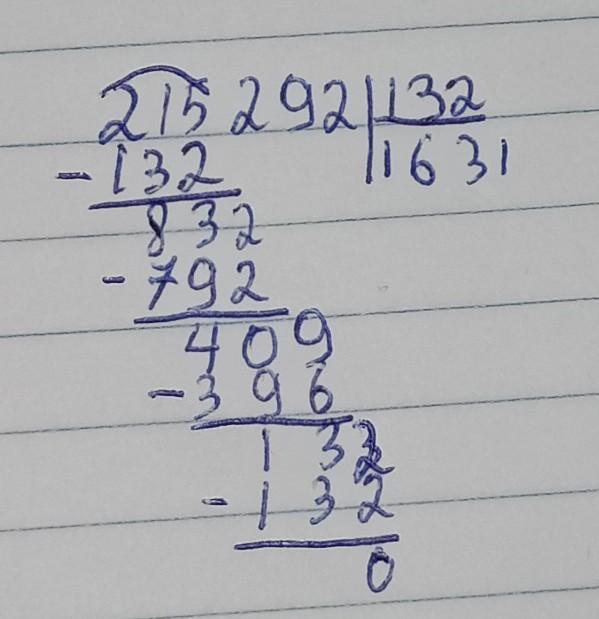 215292|132
-132 |1631
832
-792
409
-396
132
-132
0